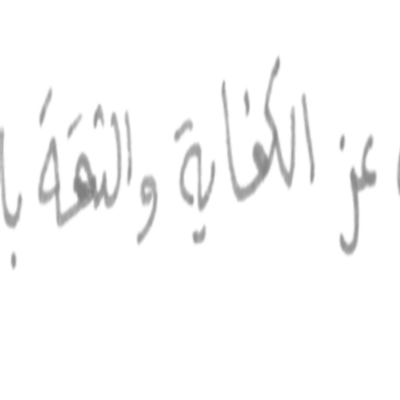 عن الكفاية والثقة با